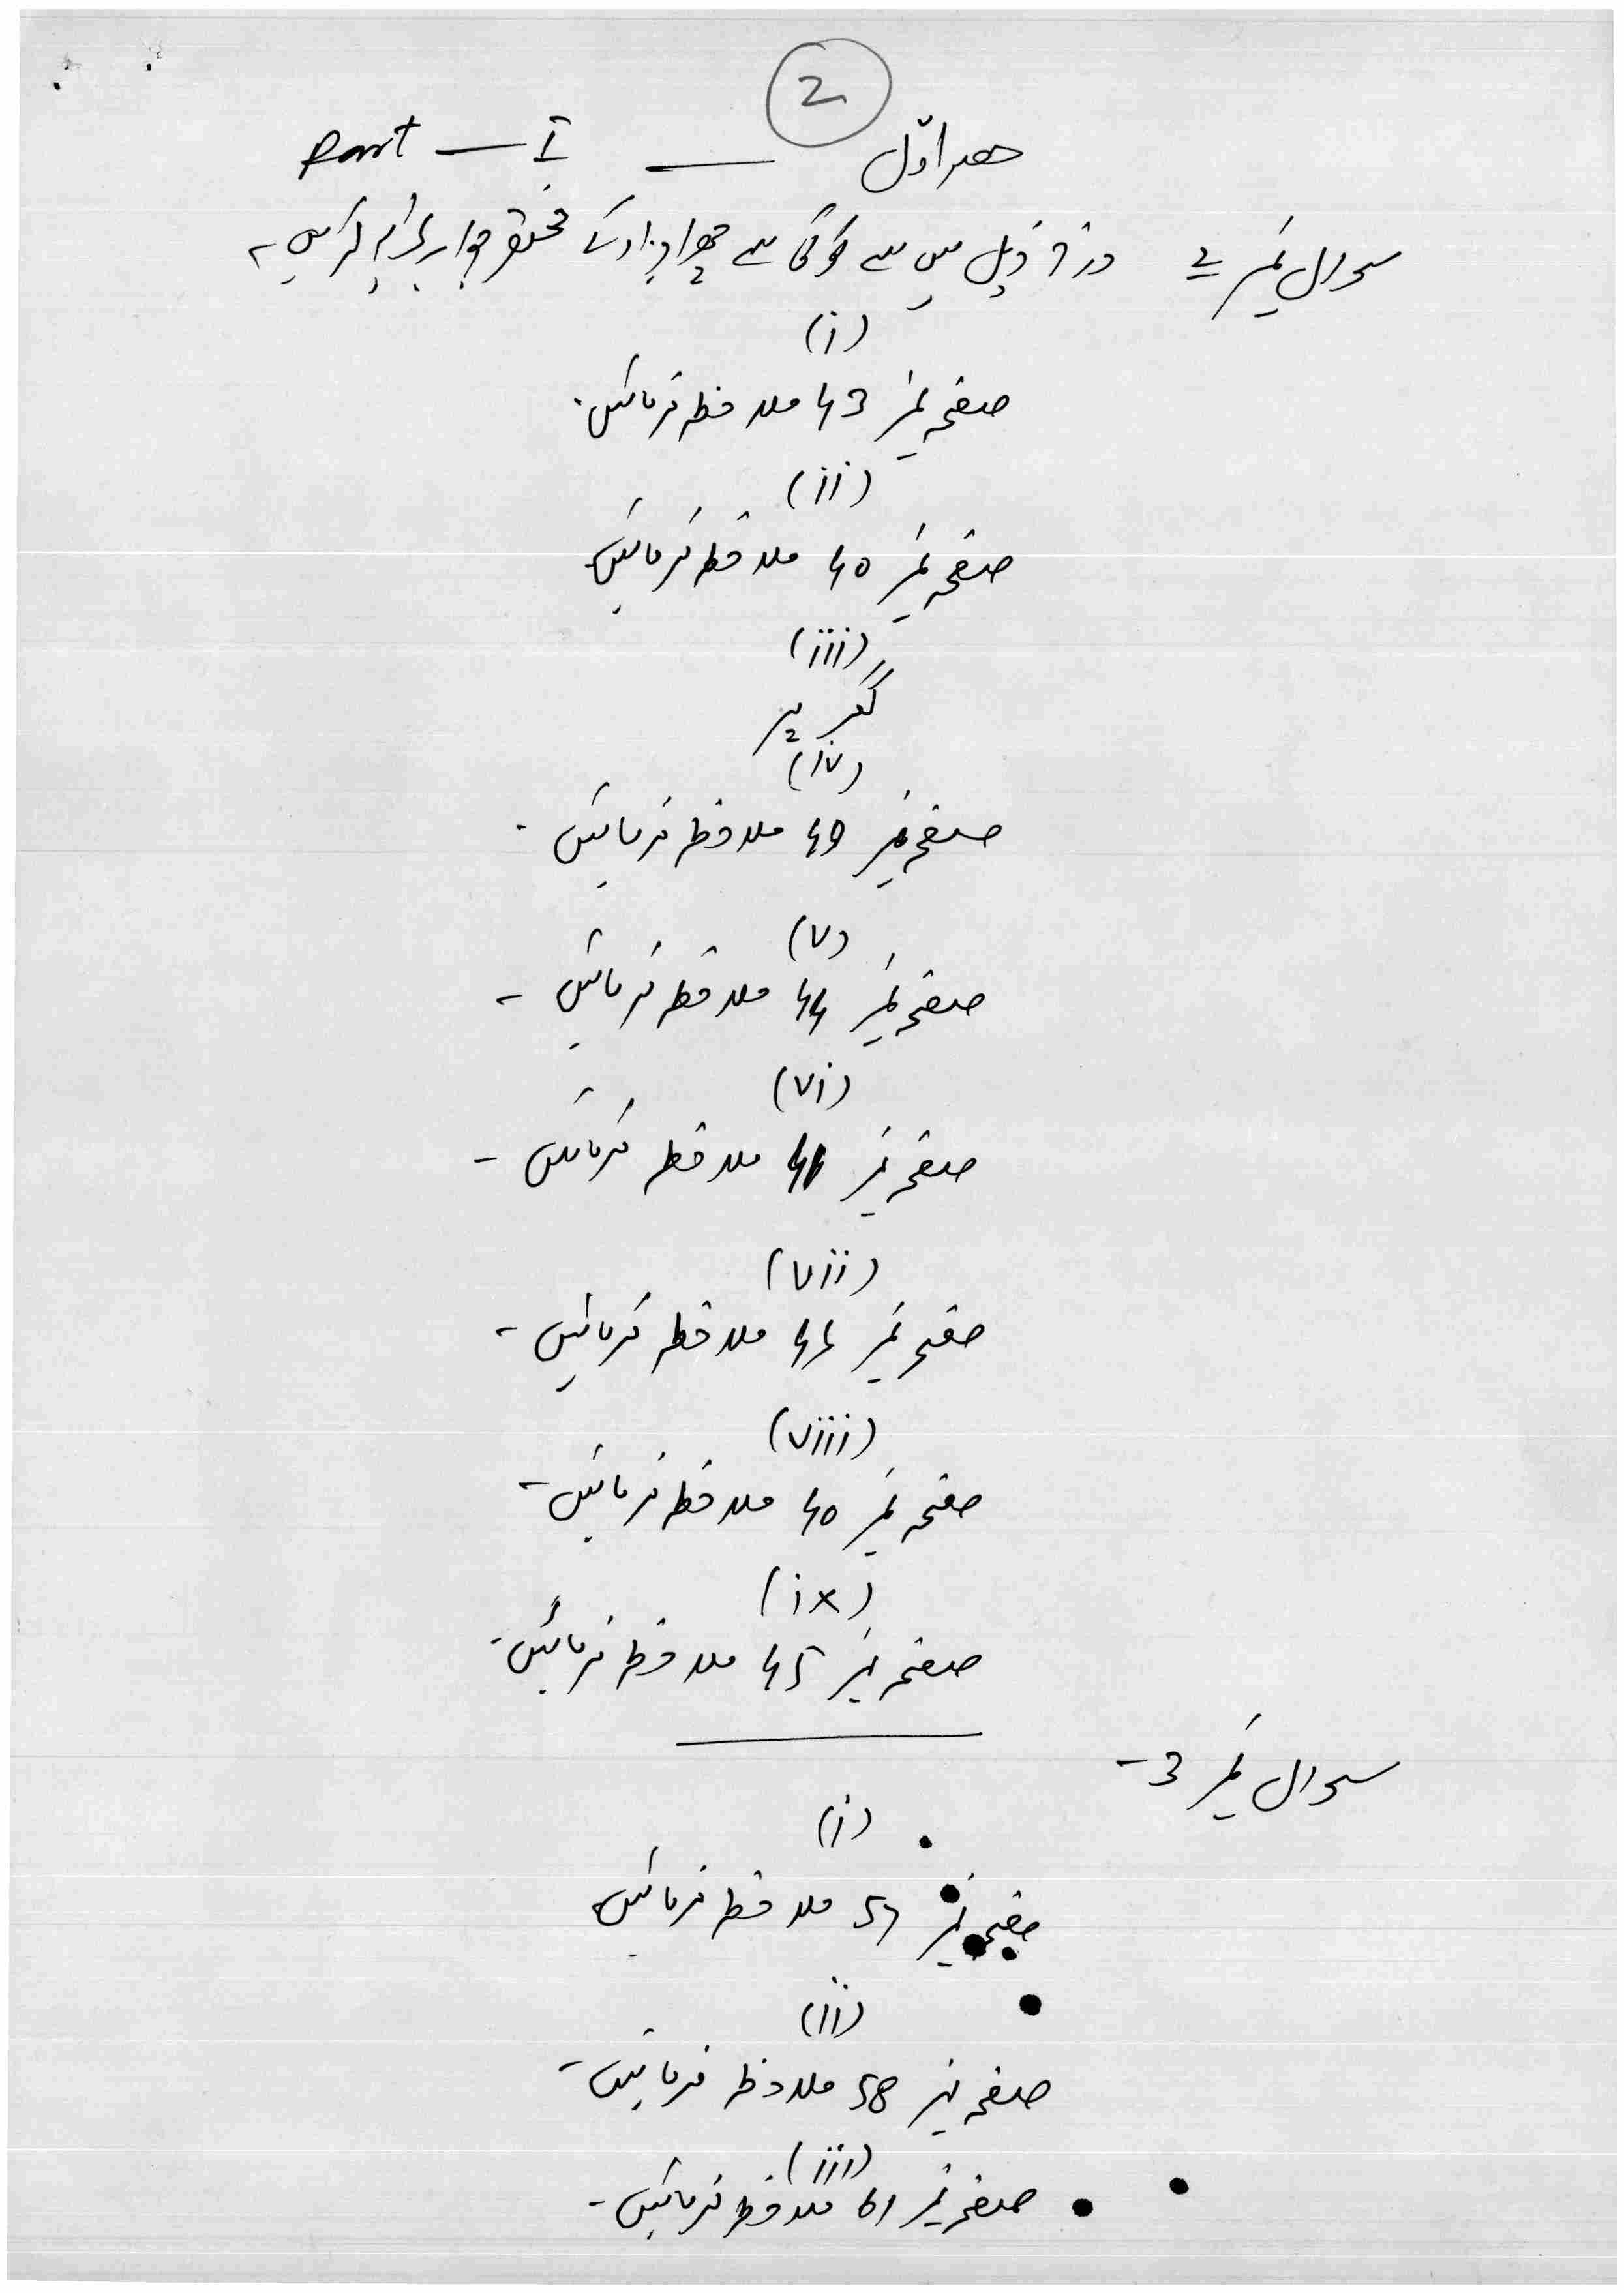 2
حصہ اوّل — Part — I
سوال نمبر 2 درج ذیل میں سے کوئی سے چھ اجزاء کے مختصر جواب تحریر کریں۔
(i)
صفحہ نمبر 43 ملاحظہ فرمائیں۔
(ii)
صفحہ نمبر 40 ملاحظہ فرمائیں
(iii)
(iv)
صفحہ نمبر 49 ملاحظہ فرمائیں۔
(v)
صفحہ نمبر 44 ملاحظہ فرمائیں۔
(vi)
صفحہ نمبر ملاحظہ فرمائیں۔
(vii)
صفحہ نمبر ملاحظہ فرمائیں۔
(viii)
صفحہ نمبر 40 ملاحظہ فرمائیں۔
(ix)
صفحہ نمبر 45 ملاحظہ فرمائیں۔
سوال نمبر 3۔
(i)
صفحہ نمبر 57 ملاحظہ فرمائیں
(ii)
صفحہ نمبر 58 ملاحظہ فرمائیں۔
(iii)
صفحہ نمبر 61 ملاحظہ فرمائیں۔